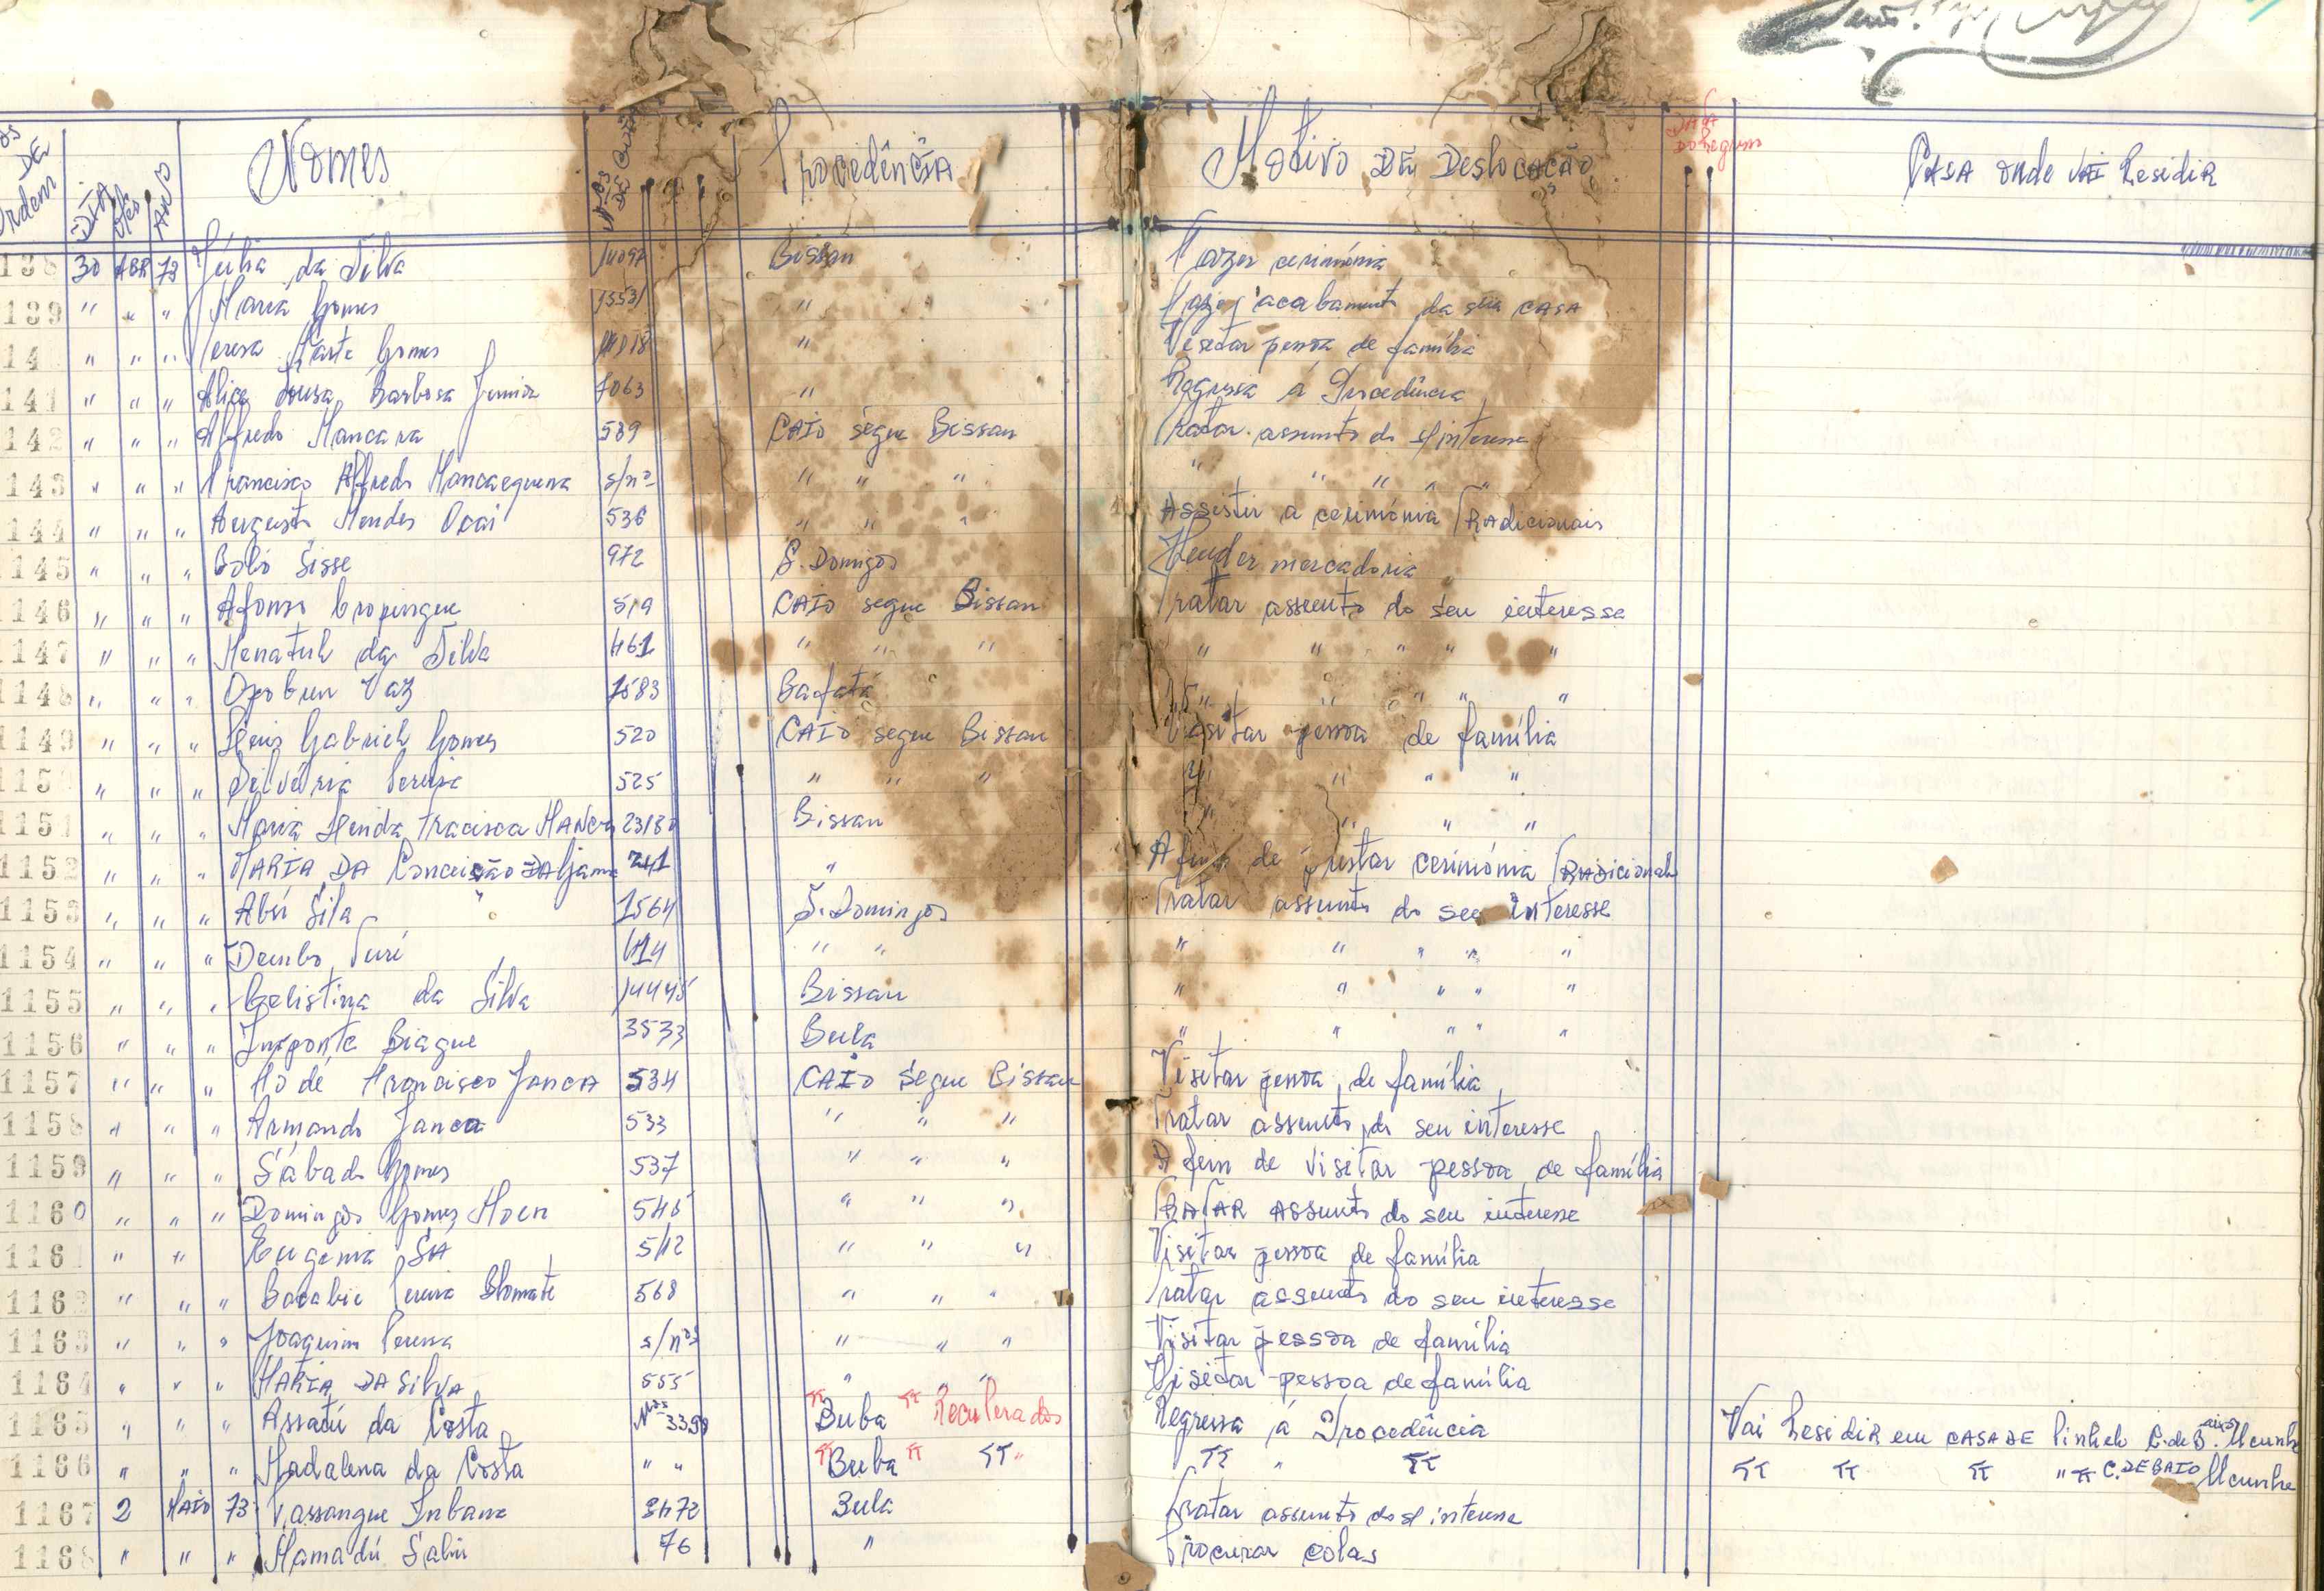 Nomes Procedência Motivo DE Deslocação DATA Do Regresso CASA onde VAI Residir
DE Ordem DIA Mês ANO
138 30 ABR 73 Júlia da Silva 14097 Bissau Fazer cerimónia
139 " " " Maria Gomes 15531 " Fazer acabamento da sua CASA
14 " " " Teresa Gomes " Visitar pessoa de família
141 " " " Alice Sousa Barbosa Junior 7063 " Regressa á Procedência
142 " " " Alfredo Mancara 539 CAIÓ segue Bissau Tratar assunto do s/interesse
143 " " " Francisco Alfredo s/nº " " " " " " " "
144 " " " Augusto Mendes Ocai 536 " " " Assistir a cerimónia Tradicionais
145 " " " Bobó Sisse 972 S. Domigos Vender mercadoria
146 " " " Afonso 519 CAIÓ segue Bissau Tratar assunto do seu interesse
147 " " " da Silva 461 " " " " " " " "
1148 " " " Vaz 1583 Bafatá " " " " "
1149 " " " Gabriel Gomes 520 CAIÓ segue Bissau Visitar pessoa de família
115 " " " Silvéria Pereira 525 " " " " " " "
1151 " " " Maria 2318 Bissau " " " "
1152 " " " MARIA DA Conceição 241 " Afim de prestar cerimónia Tradicional
1153 " " " Abú Sila 1564 S. Domingos Tratar assunto do seu interesse
1154 " " " Dembo Turé 414 " " " " " " "
1155 " " " Celistina da Silva 14445 Bissau " " " " "
1156 " " " Inponta Biague 3533 Bula " " " " "
1157 " " " Francisco JANCA 534 CAIÓ Segue Bissau Visitar pessoa de família
1158 " " " Armando Janca 533 " " " Tratar assunto do seu interesse
1159 " " " Sábado Gomes 537 " " " A fim de visitar pessoa de família
1160 " " " Domingos Gomes 545 " " " TRATAR ASSUNTO do seu interesse
1161 " " Eugenia SÁ 542 " " " Visitar pessoa de família
1162 " " " Bacabie Pereira 568 " " " Tratar assunto do seu interesse
1163 " " " Joaquim Pereira s/nº " " " Visitar pessoa de família
1164 " " " MARIA DA SILVA 555 " " " Visitar pessoa de família
1165 " " " Assatú da Costa Nº 3398 Buba Reculerados Regressa á Procedência Vai Residir em CASA DE
1166 " " " Madalena da Costa " " Buba " " " " " " " " C. DE BAIO
1167 2 MAIO 73 Vassangue Inbana 3472 Bula Tratar assunto do s/ interesse
1168 " " " Mamadú Sabú 76 " Procurar colas